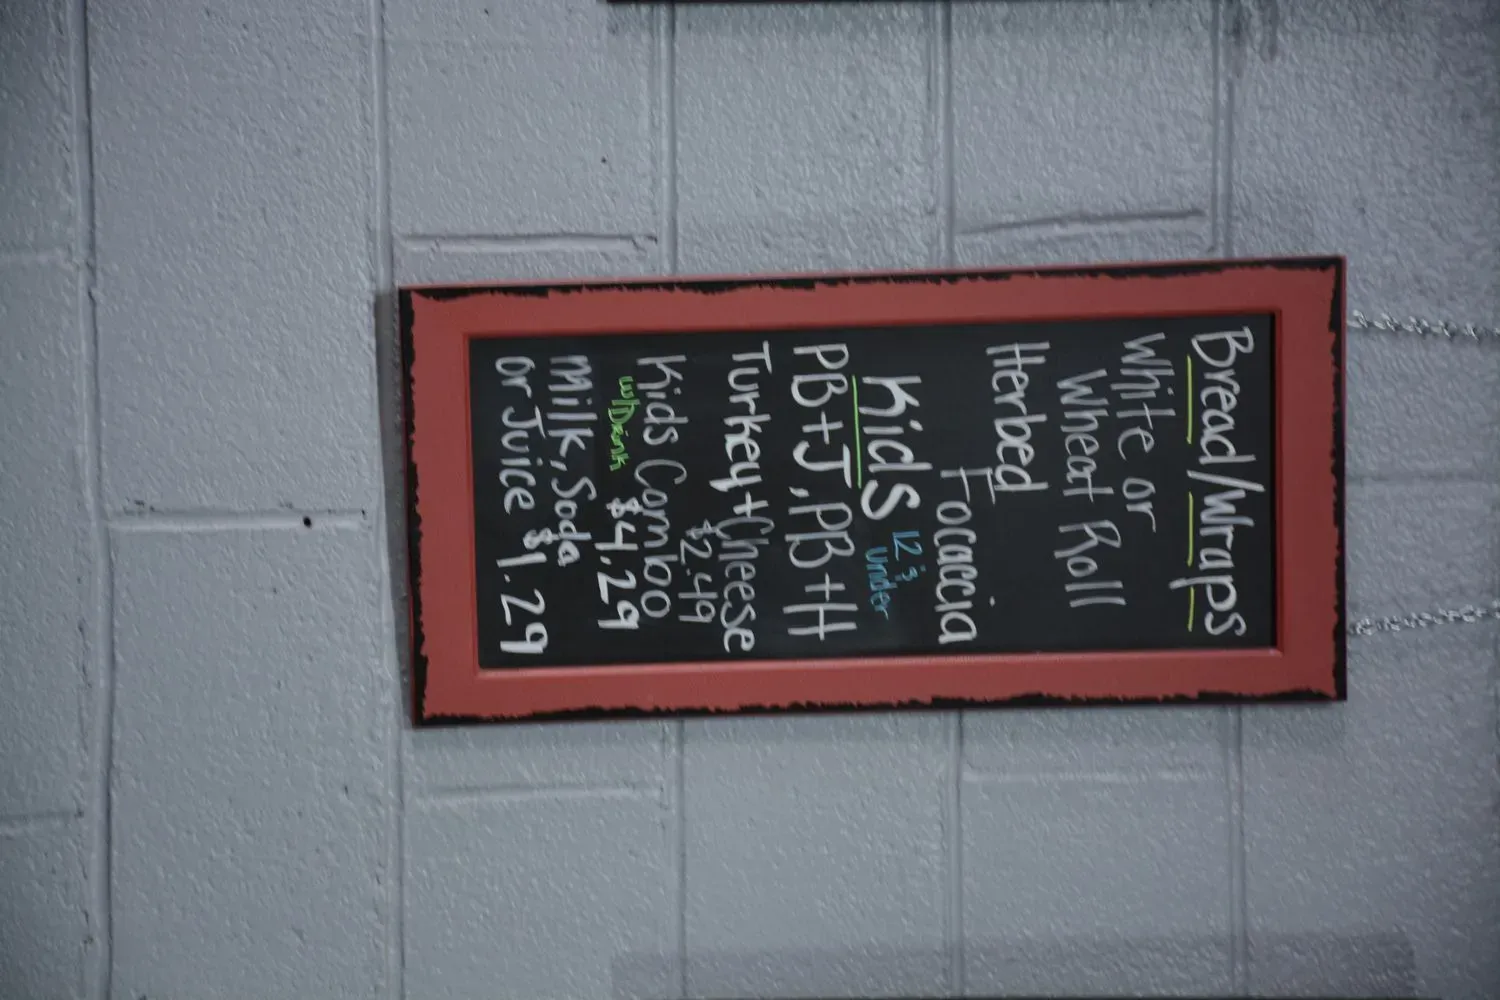 Bread/Wraps
White or
Wheat Roll
Herbed
Focaccia
Kids 12 & under
PB+J, PB+H
Turkey+Cheese
$2.49
Kids Comboo
w/Drink $4,29
Milk, Soda
or Juice $1.29